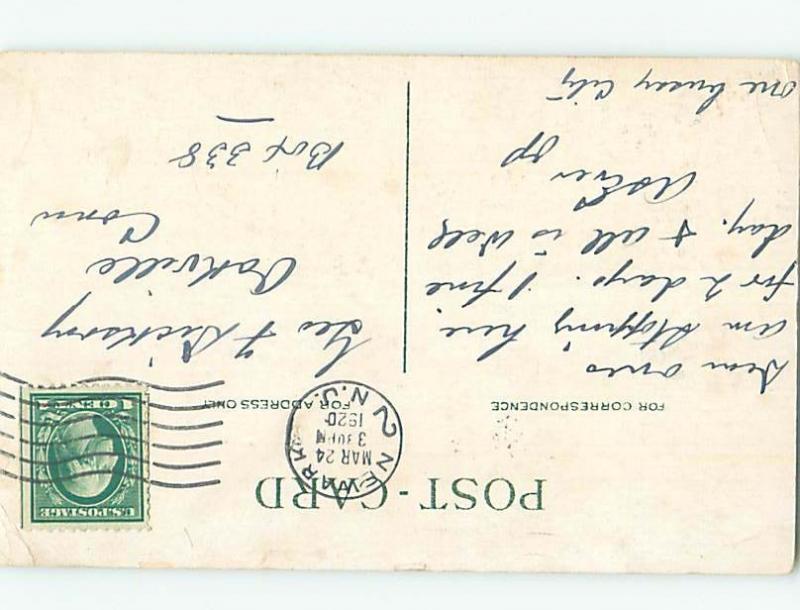 POST-CARD
FOR CORRESPONDENCE
Dear Ones
am stopping here
for 2 days. 1 fine
day. & all is well
As Ever
GP
one Quay City
FOR ADDRESS ONLY
U.S. POSTAGE
1 CENT 1
NEWARK
MAR 24
3 30 PM
1920
N.J.
2
Geo F Dickson
Oakville
Conn
Box 338